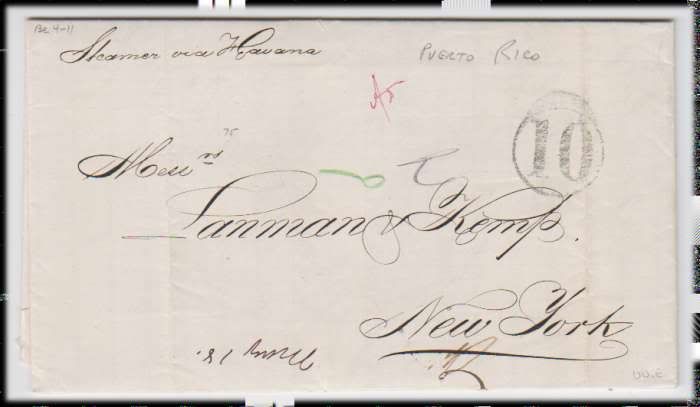 Bz 4-11
Steamer via Havana
PUERTO RICO
A5
10
75
Mess rs
Lanman & Kemp.
New York